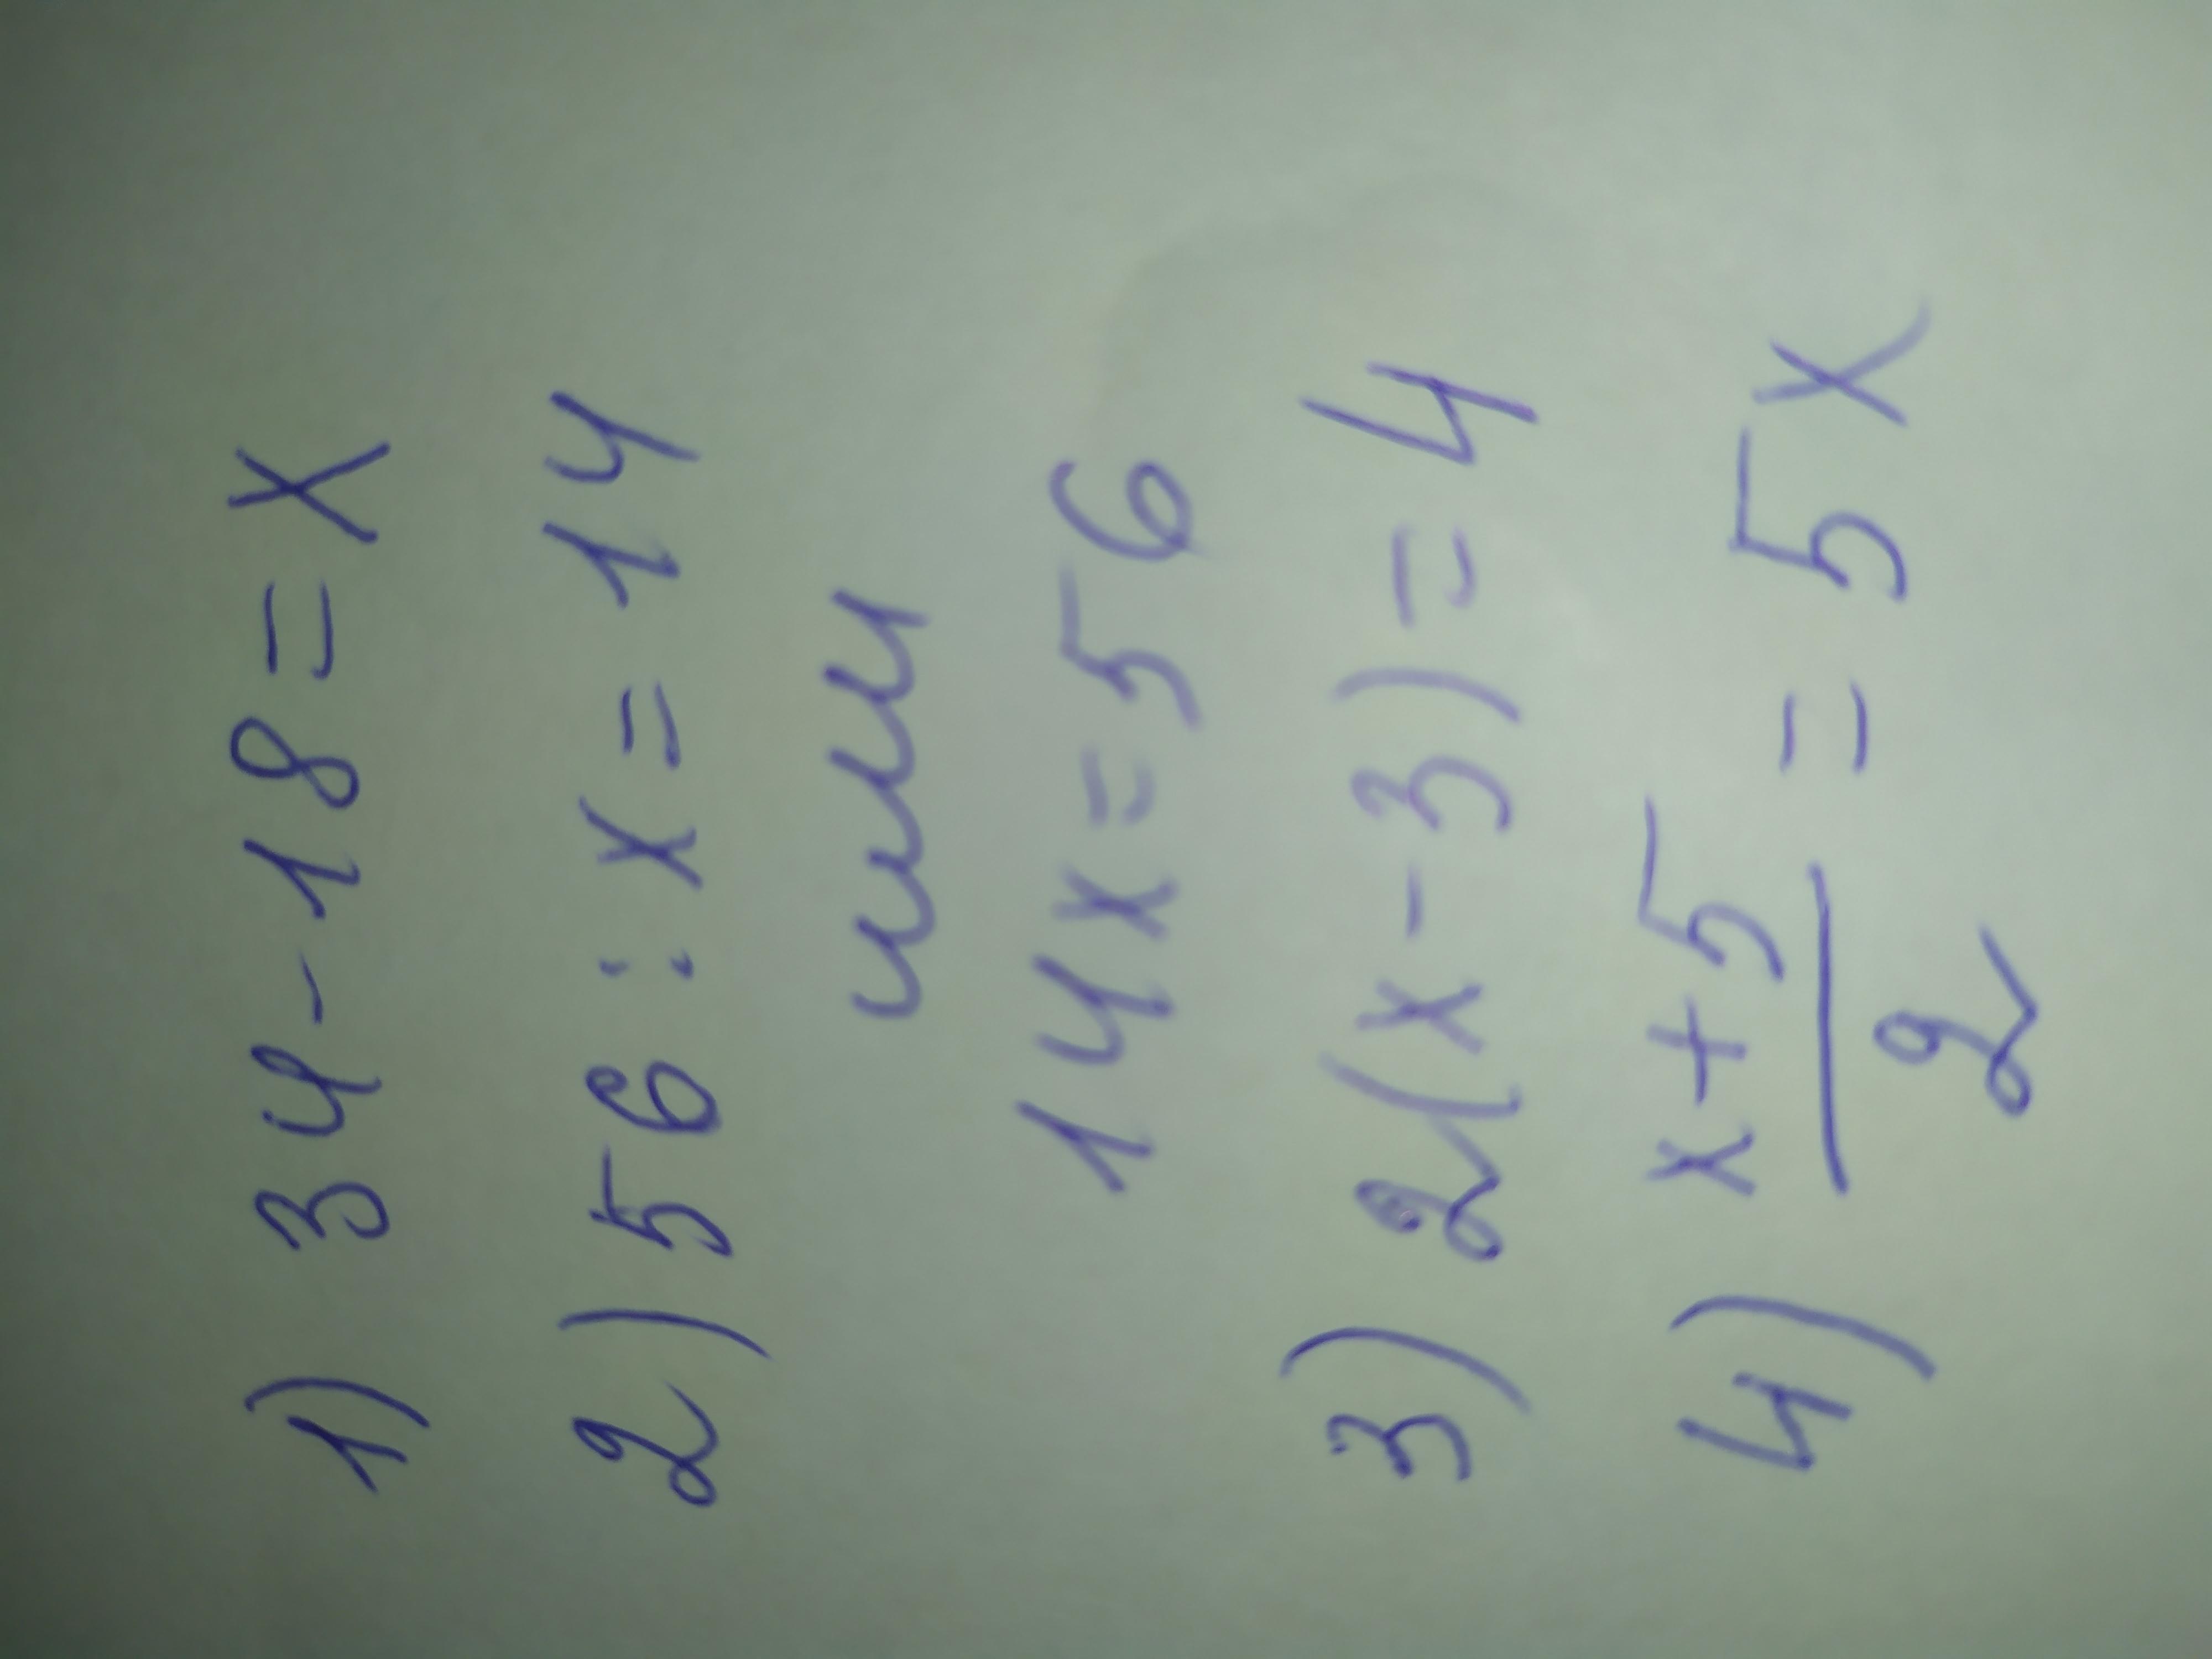 1) 34 - 18 = x
2) 56 : x = 14
или
14x = 56
3) 2(x - 3) = 4
4) x + 5 = 5x
2